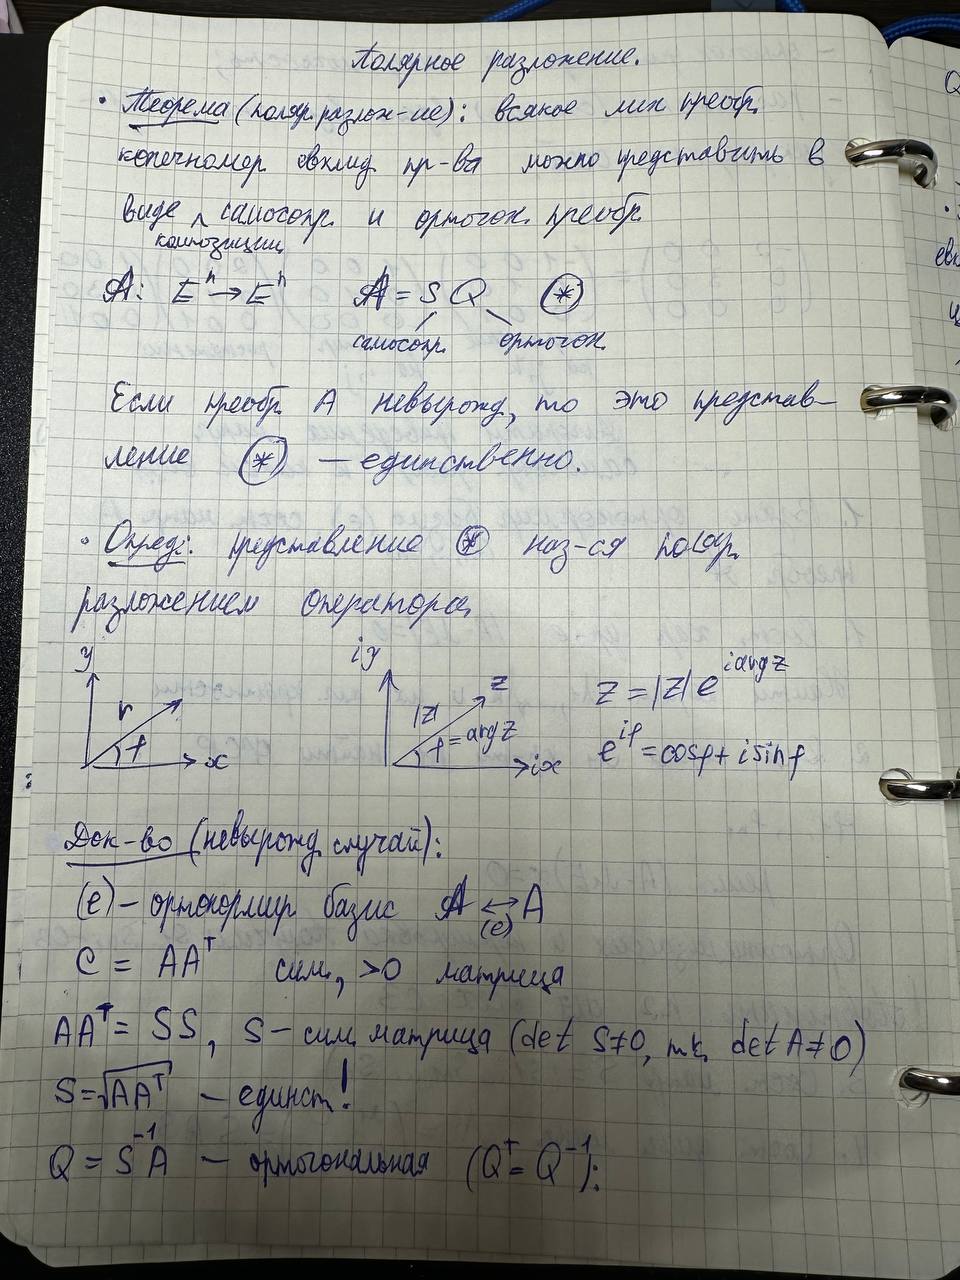 Полярное разложение.
• Теорема (поляр. разлож-ие): всякое лин преобр.
конечномер евклид пр-ва можно представить в
виде композиции самосопр. и ортогон. преобр
A: Eⁿ → Eⁿ A = S Q (*)
самосопр. ортогон.
Если преобр. A невырожд, то это представ-
ление (*) — единственно.
• Опред: представление (*) наз-ся поляр.
разложением оператора
y r φ x
iy |z| z φ = arg z ix
z = |z| e^{i arg z}
e^{iφ} = cosφ + i sinφ
Док-во (невырожд. случай):
(e) — ортонормир базис A ↔ A
(e)
C = AAᵀ сим, >0 матрица
AAᵀ = SS, S — сим. матрица (det S≠0, т.к. det A≠0)
S = √AAᵀ — единст!
Q = S⁻¹A — ортогональная (Qᵀ = Q⁻¹):